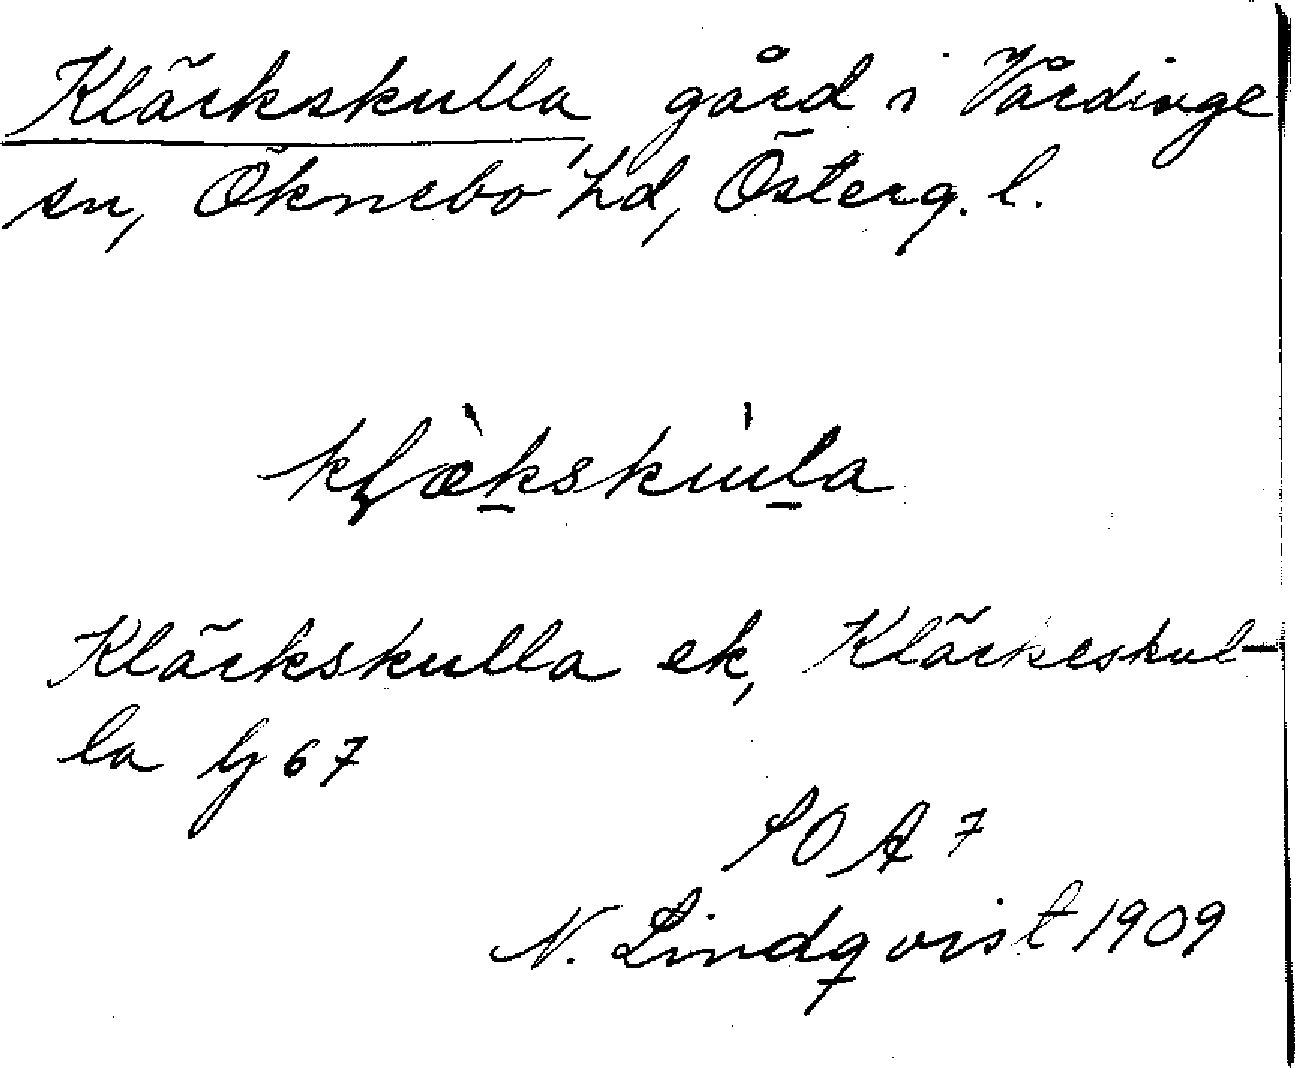 Kläckskulla, gård i Vårdinge
sn, Öknebo hd, Österg. l.
kḷæ̀kskùla
Kläckskulla ek, Kläckeskul-
la lj 67
SOA 7
N. Lindqvist 1909